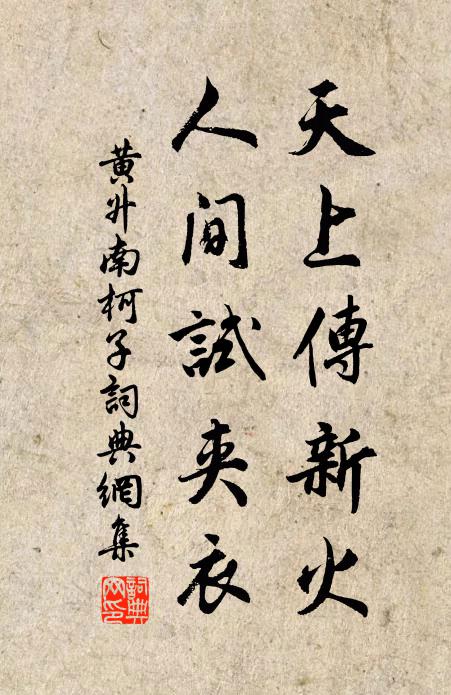 天上傳新火
人間試夹衣
黄升南柯子詞典網集
詞典网印